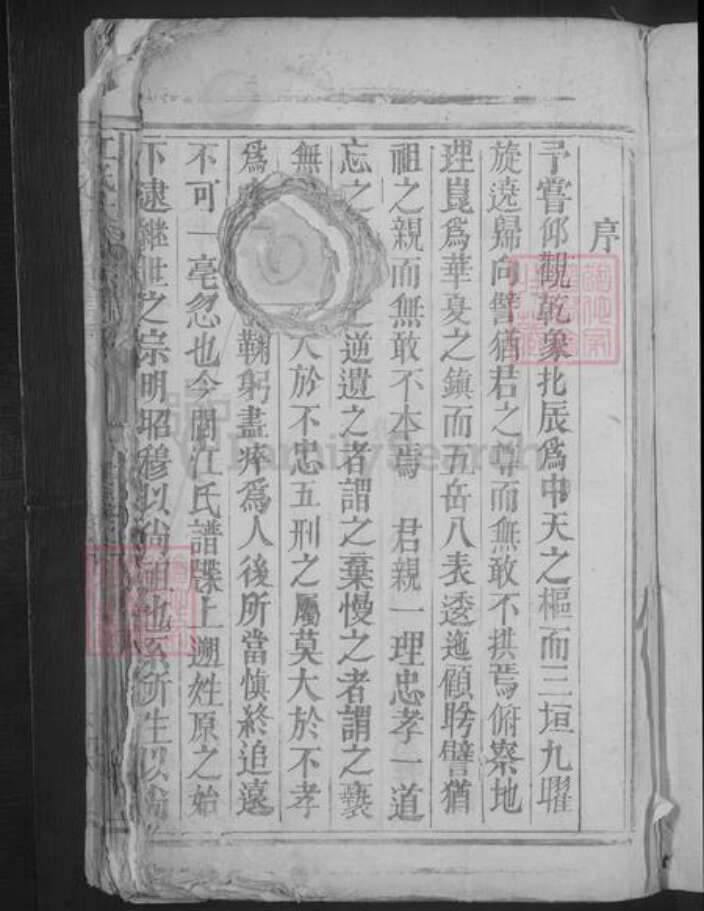 序
予嘗仰觀乾象北辰爲中天之樞而三垣九曜
旋遶歸向譬猶君之尊而無敢不拱焉俯察地
理崑爲華夏之鎮而五岳八表逶迤顧盻譬猶
祖之親而無敢不本焉 君親一理忠孝一道
忘之 逆遺之者謂之棄慢之者謂之褻
無 大於不忠五刑之屬莫大於不孝
爲 鞠躬盡瘁爲人後所當慎終追遠
不可一毫忽也今閱江氏譜牒上遡姓原之始
下逮繼世之宗明昭穆以尙祖也系所生以
FamilySearch